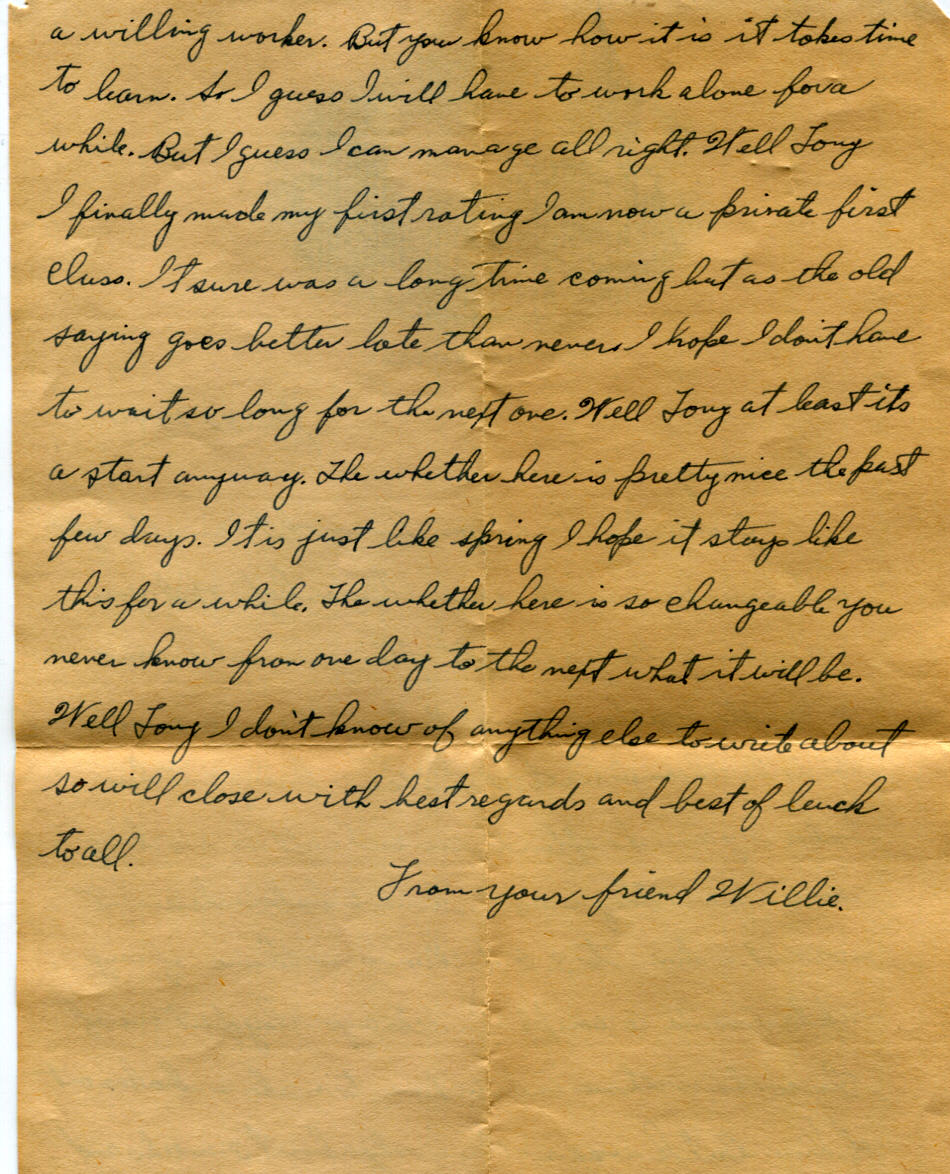 a willing worker. But you know how it is it takes time
to learn. So I guess I will have to work alone for a
while. But I guess I can manage all right. Well Tony
I finally made my first rating I am now a private first
class. It sure was a long time coming but as the old
saying goes better late than never. I hope I don't have
to wait so long for the next one. Well Tony at least its
a start anyway. The whether here is pretty nice the past
few days. It is just like spring I hope it stays like
this for a while. The whether here is so changeable you
never know from one day to the next what it will be.
Well Tony I don't know of anything else to write about
so will close with best regards and best of luck
to all.
From your friend Willie.